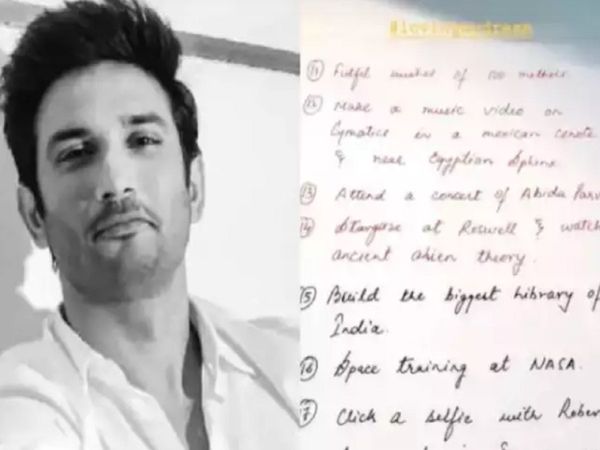 #lovingmydreams
11 Fulfil wishes of 100 mothers.
12 Make a music video on
Cymatics in a mexican cenote
& near Egyptian Sphinx
13 Attend a concert of Abida Parv
14 Stargaze at Roswell & watch
ancient alien theory.
15 Build the biggest library of
India.
16 Space training at NASA.
17 Click a selfie with Rober